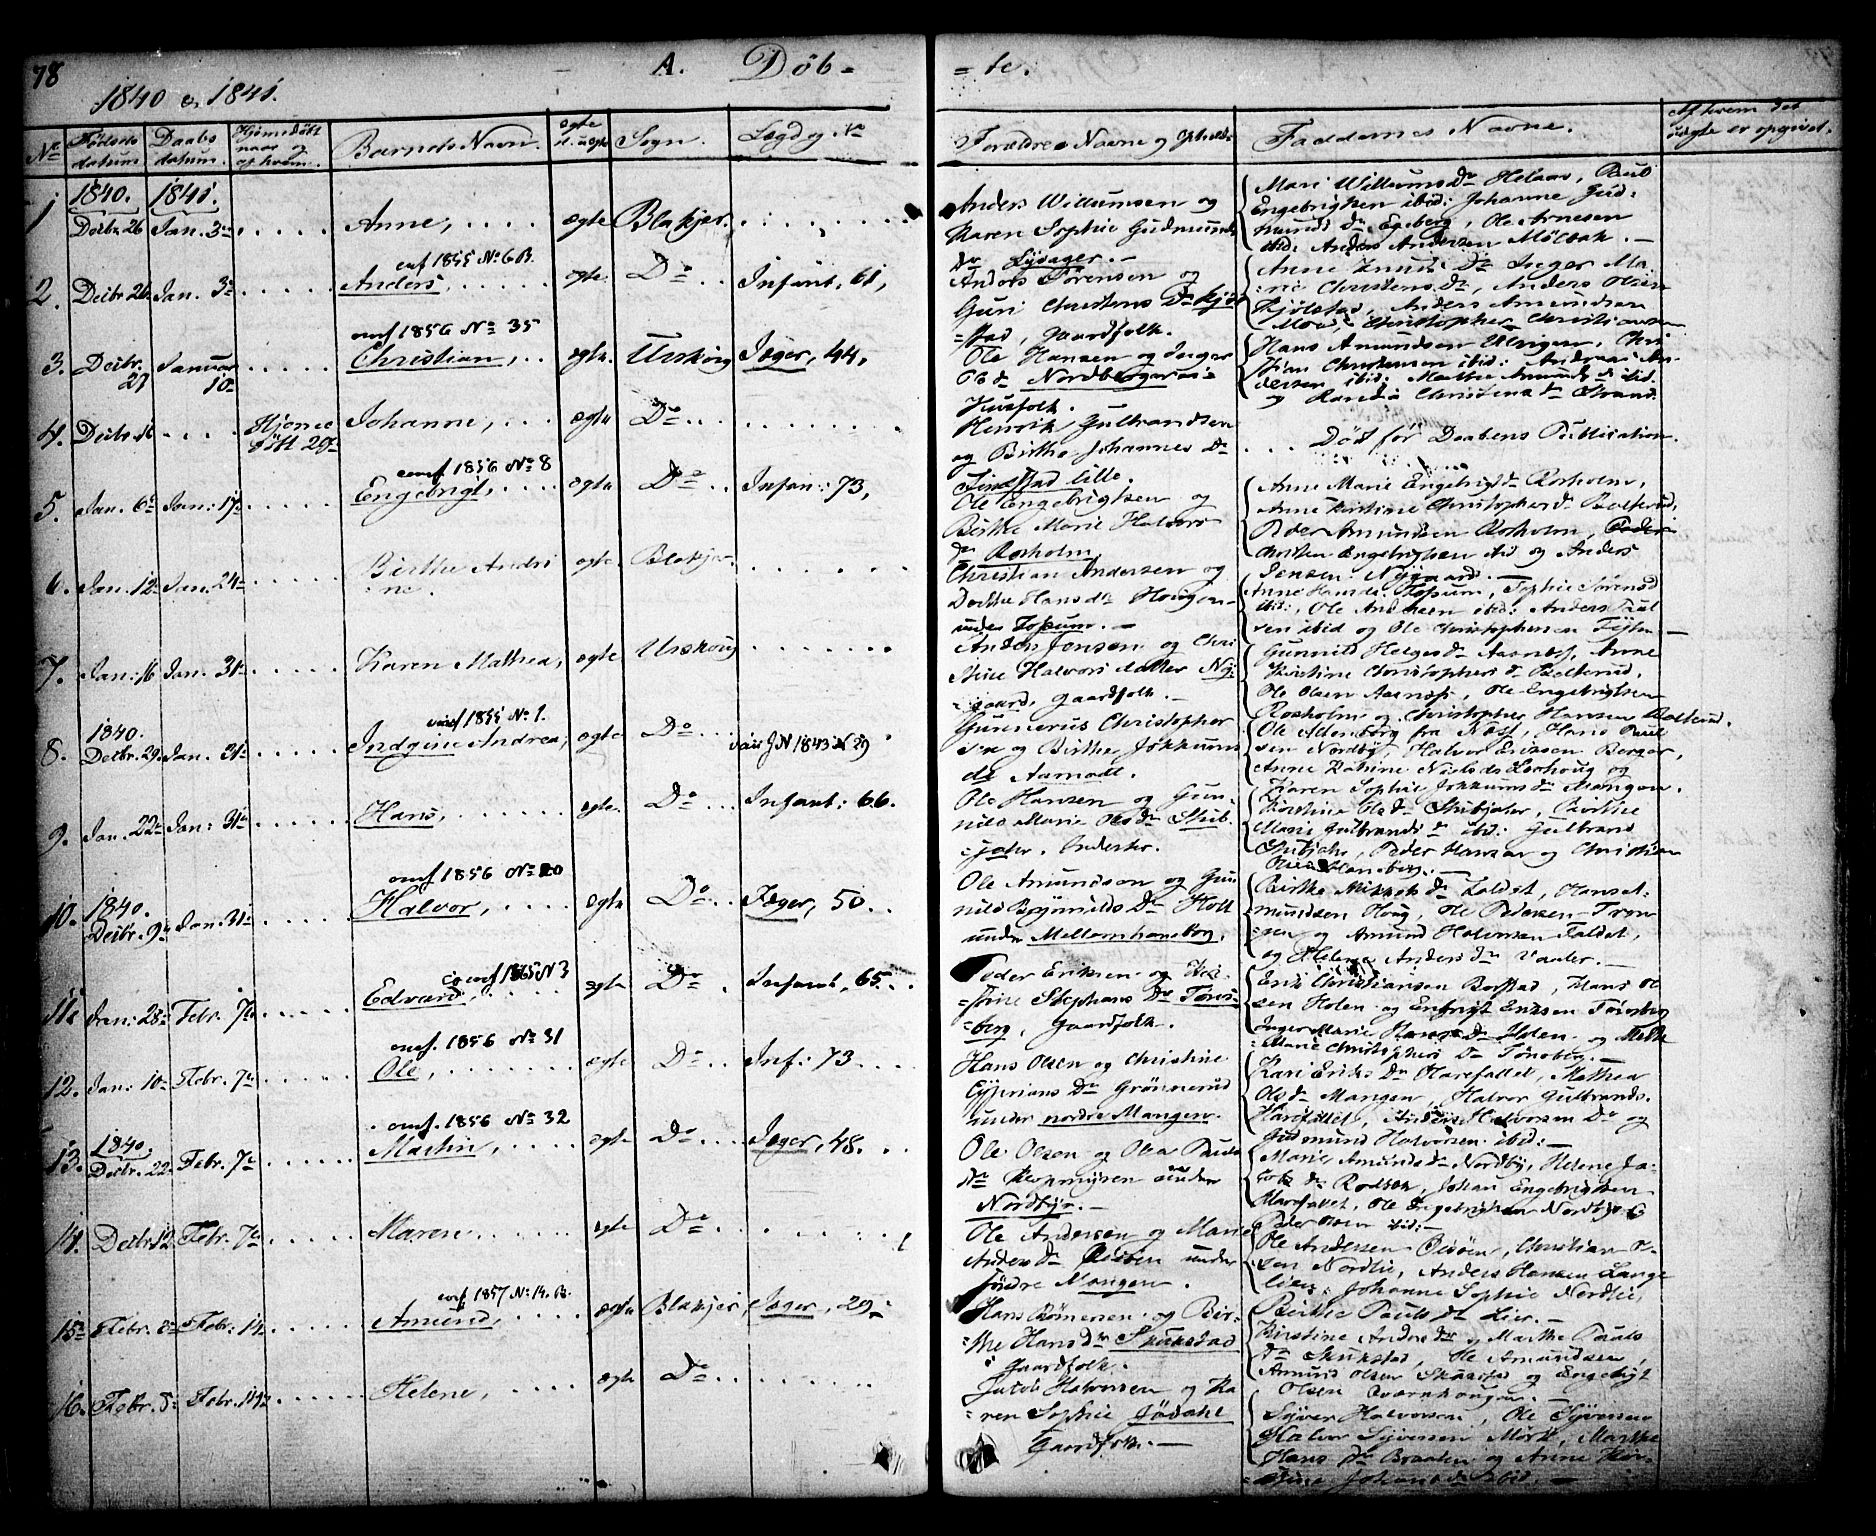 78
A. Döb-
= te.
1840 & 1841.
No Födsels datum Daabs datum. Hjemedöbt naar og af hvem. Barnets Navn. ægte el. uægte Sogn. Lægd og No Forældres Navne og Faddernes Navne. Af hvem det uægte er opgivet.
1 1840. Decbr. 26 1841. Jan. 3 Anne, ægte Blakjer.
Anders Willumsen og
Karen Sophie Gudmunds
dr Lysager.
Mari Willums Dr Helaas, Poul
Engebrigtsen ibid: Johanne Gud:
munds Dr Egeberg, Ole Arnesen
ibid: Anders Andersen Mölbak.
2. Decbr. 26 Jan. 3 conf 1855 No 6 B. Anders, ægte Do Infant, 61,
Anders Sörensen og
Guri Christens Dr Kjöl
stad, Gaardfolk.
Anne Knuds Dr Jæger, Ma-
rie Christens Dr, Anders Olsen
Kjölstad, Anders Amundsen
Moe, Christopher Christiansen
3. Decbr. 27 Januar 10 conf 1856 No 35 Christian, ægte Urskoug Jæger, 44,
Ole Hansen og Inger
Ols Dr Nordbergeraas
Huusfolk.
Hans Amundsen Mangen, Chri-
stian Christensen ibid: Andreas An-
dersen ibid: Marthe Amunds Dr ibid.
og Karen Christens Dr Strand.
4. Decbr. 16 Hjeme döbt 29 Johanne, ægte Do
Henrik Gulbrandsen
og Birthe Johannes Dr
Finstad lille.
Död för Daabens Publication.
5. Jan. 6 Jan: 17 conf 1856 No 8 Engebrigt, ægte Do Infan: 73,
Ole Engebrigtsen og
Birthe Marie Halvors
dr Rosholm,
Anne Marie Engebrigts Dr Rosholm,
Anne Kirstine Christophers Dr Bolterud,
Peder Amundsen Rosholm,
Christen Engebrigtsen ibid og Anders
Jensen Nygaard.
6. Jan. 12 Jan. 24 Birthe Andri
ne. ægte Blakjer
Christian Andersen og
Dorthe Hans Dr Hougen
under Fossum.
Anne Hans Dr Fossum, Sophie Sörens d
ibid:, Ole Andersen ibid: Anders Paul
sen ibid og Ole Christophersen
7. Jan: 16 Jan. 31 Karen Mathea, ægte Urskoug
Anders Jensen og Chri
stine Halvors datter Ny
gaard, Gaardfolk.
Gunnild Helges Dr Aarnes, Anne
Kirstine Christophers Dr Bolterud,
Ole Olsen Aarnes, Ole Engebrigtsen
Rosholm og Christopher Hansen Bolterud.
8. 1840. Decbr. 29. Jan. 31 conf 1855 No 1. Indgine Andrea, ægte Do 1843 N 29
Gunnerus Christopher
sen og Birthe Jokkums
dr Aamodt.
Ole Altenborg fra Næss, Hans Poul
sen Nordby, Halver Eriksen Berger,
Anne Katrine Niels d og
Karen Sophie Jokkums Dr Mangen.
9. Jan. 22 Jan: 31 Hans, ægte Do Infant: 66.
Ole Hansen og Gun-
nild Marie Ols Dr Skib-
jater. Inderster.
Kirstine Ols Dr Skibjater, Berthe
Marie Gulbrands Dr ibid: Gulbrand
Skibjater, Peder Hansen og Christian
Haneborg.
10. 1840. Decbr. 9 Jan 31 conf 1856 No 20 Halvor, ægte Do Jæger, 50
Ole Amundsen og Gun
nild Brynilds Dr Holt
under Mellomhaneborg.
Birthe Mikkels Dr Faldet, Hans A-
mundsen Houg, Ole Pedersen
og Amund Halvorsen Faldet,
og Helene Anders Dr Vaaler.
11. Jan: 28 Febr. 7 conf 1865 N 3 Edvard, ægte Do Infant, 65
Peder Eriksen og Kri-
stine Stephans Dr Tönes-
berg, Gaardfolk.
Erik Christiansen Borstad, Hans Ol
sen Holen og Engebrigt Eriksen Tönesberg
Inger Marie Hans Dr Holen og Marthe
Marie Christophers Dr Tönsberg.
12. Jan: 10 Febr. 7 conf. 1856 No 31 Ole, ægte Do Inf: 73
Hans Olsen og Christine
Cyprians Dr Grönnerud
under nordre Mangen.
Kari Eriks Dr Harefallet, Mathea
Ols Dr Mangen, Halvor Gulbrands.
Harefallet, Anders Halvorsen Do og
Gudmund Halvorsen ibid:
13. 1840. Decbr. 22 Febr. 7 conf. 1856 No 32 Martin, ægte Do Jæger, 48.
Ole Olsen og Olea Pauls
Dr Klopmyren under
Nordbye.
Marie Amunds Dr Nordby, Helene Ja-
cobs Dr Rodsæt, Johan Engebrigtsen
Harefallet, Ole Engebrigtsen Nordbye &
Peder Olsen ibid:
14. Decbr. 12 Febr. 7 Maren, ægte Do
Ole Andersen og Marie
Anders Dr under
söndre Mangen.
Ole Andersen Bisöen, Christian Ol-
sen Nordlie, Anders Hansen Lange
lien, Johanne Sophie Nordlie,
Birthe Pauls Dr Lier.
15 Febr. 8 Febr: 14 conf 1857 No 14. B. Amund, ægte Blakjer Jæger, 29
Hans Römersen og Bir-
the Hans Dr Skukstad
Gaardfolk.
Kirstine Andre Dr og Marthe Pauls
Dr Skukstad, Ole Amundsen,
Amund Olsen Skukstad og Engebrigt
Olsen Kvernhougen.
16. Febr. 5 Febr. 14 Helene, ægte Do
Jacob Halvorsen og Ka
ren Sophie Jödahl
Gaardfolk.
Syver Halvorsen, Ole Syversen
Halvor Syversen Mork, Marthe
Hans Dr Braaten og Anne Kir-
stine Johans Dr ibid.